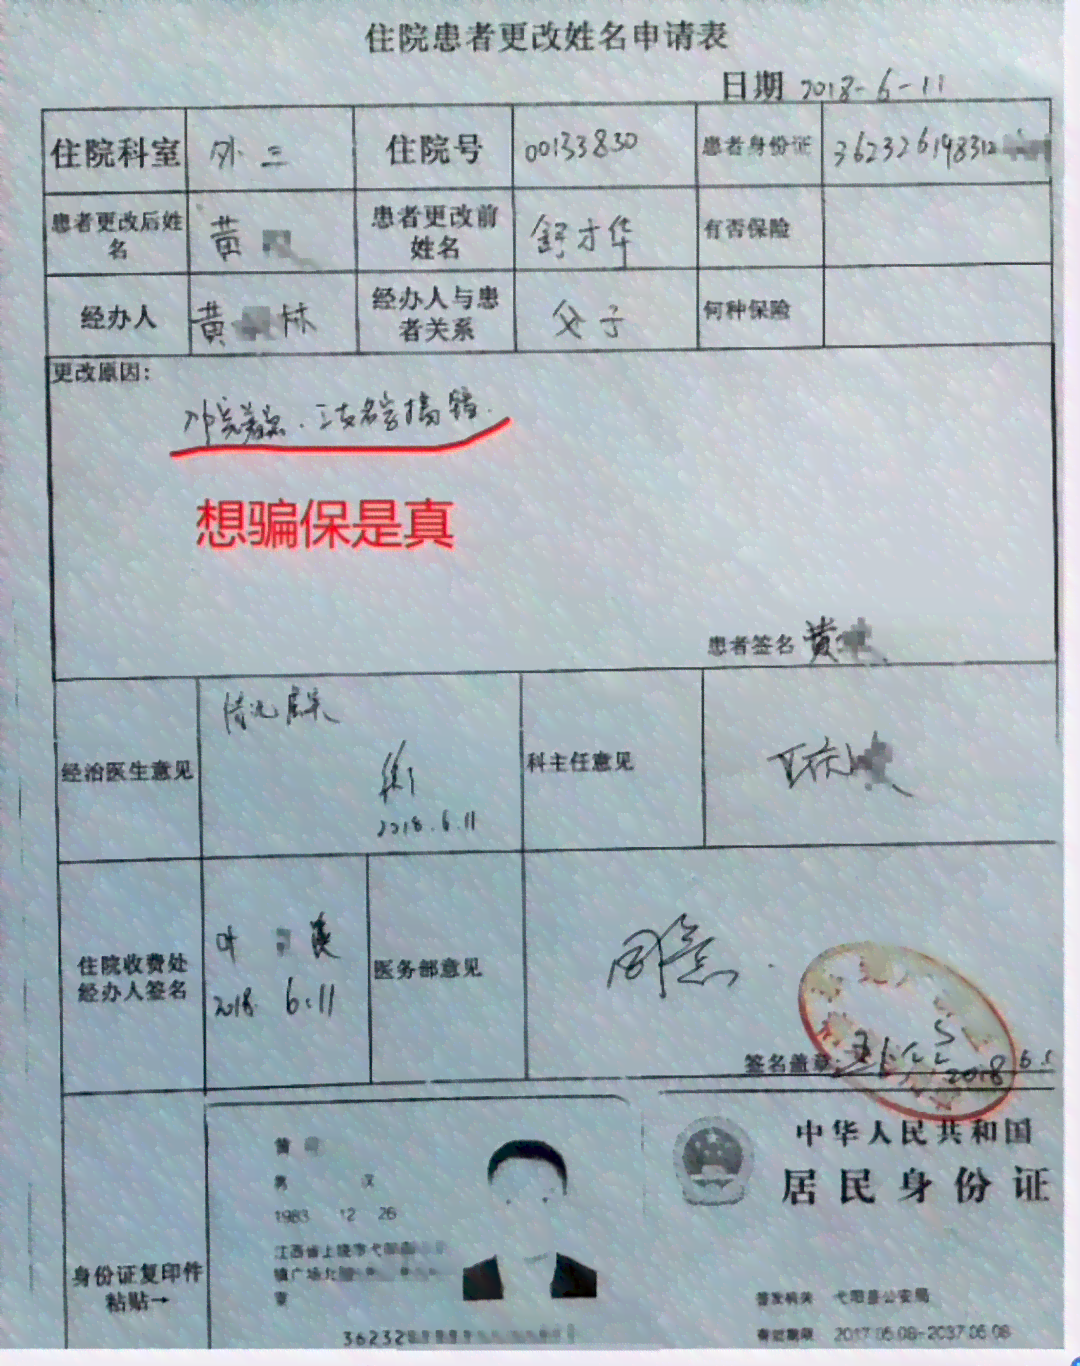 住院患者更改姓名申请表
日期 2018-6-11
住院科室 外三 住院号 00133830 患者身份证 362326198312
患者更改后姓名 黄 患者更改前姓名 舒才华 有否保险
经办人 黄 林 经办人与患者关系 父子 何种保险
更改原因:
名字搞错.
想骗保是真
患者签名 黄
经治医生意见 情况属实 2018.6.11 科主任意见
住院收费处经办人签名 叶 2018. 6.11 医务部意见 同意.
签名盖章: 2018 6.1
身份证复印件粘贴→
黄
男 汉
1983 12 26
江西省上饶市弋阳县
镇广场北
室
362328
中华人民共和国
居民身份证
签发机关 弋阳县公安局
有效期限 2017.05.08-2037.05.08